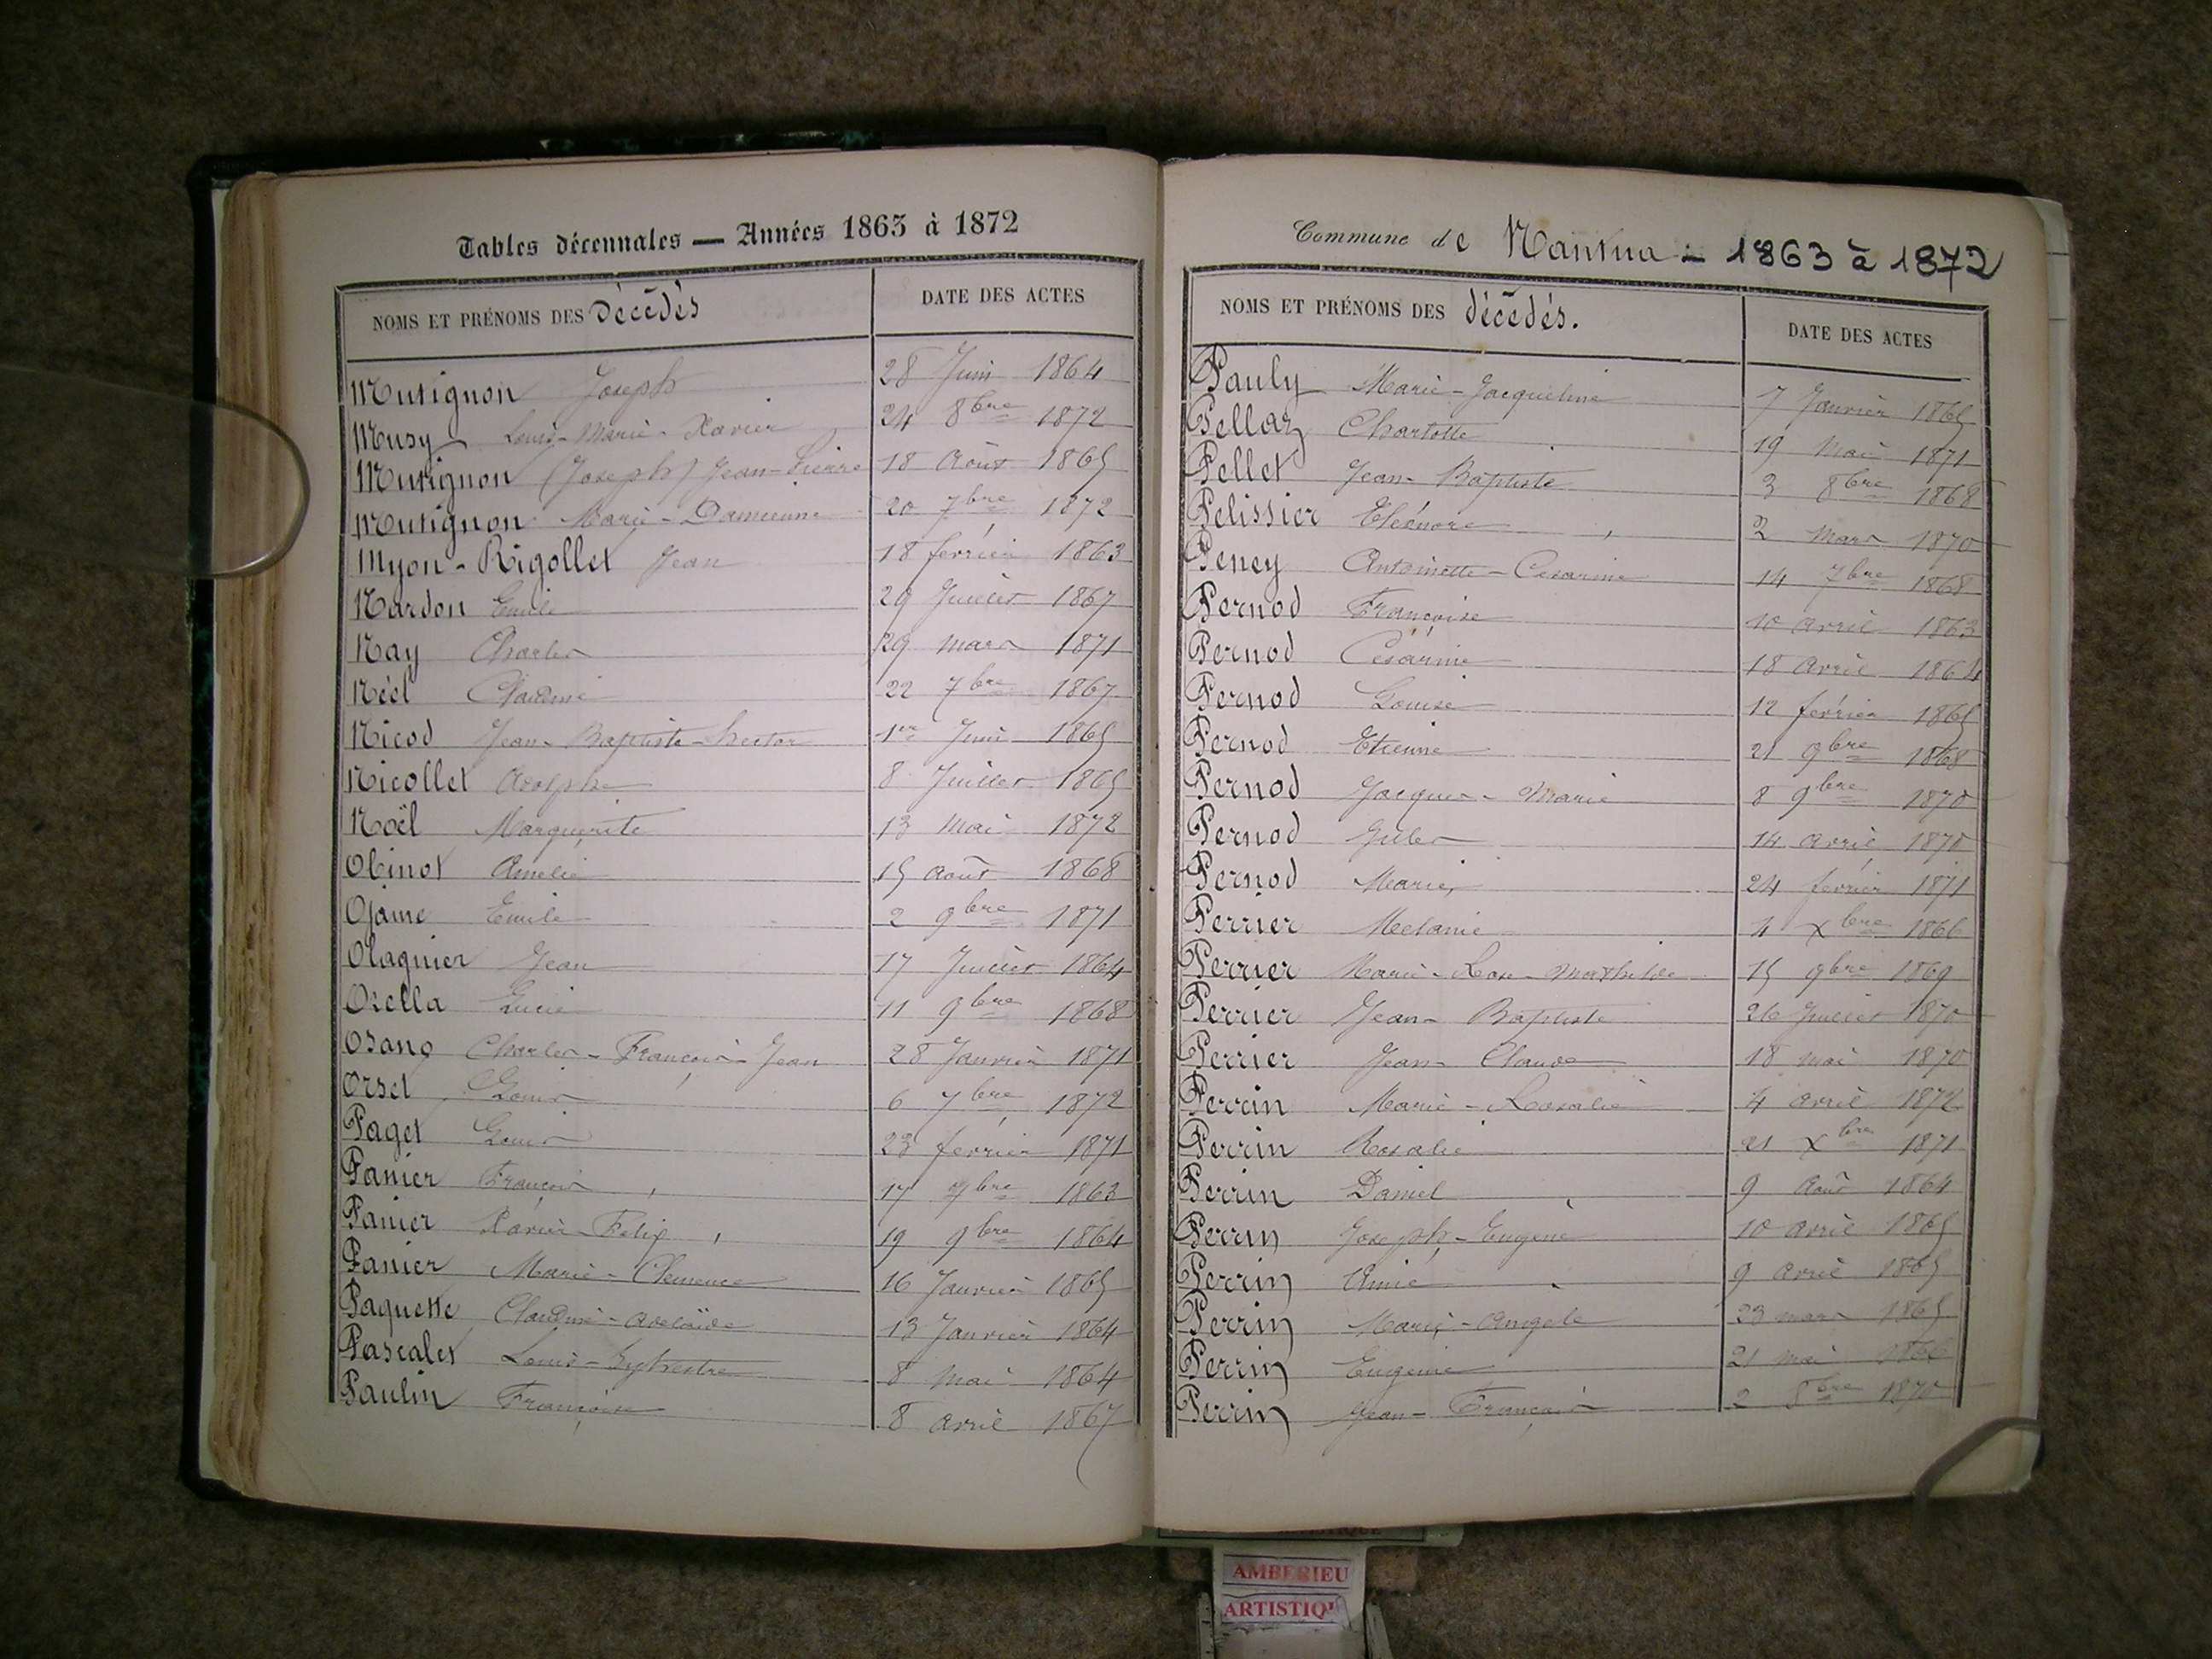 Tables décennales — Années 1863 à 1872
NOMS ET PRÉNOMS DES Décédés
DATE DES ACTES
Mutignon Joseph 28 Juin 1864
Musy Louis-Marie-Xavier 24 8bre 1872
Mutignon (Joseph) Jean-Pierre 18 Août 1865
Mutignon Marie-Damienne 20 7bre 1872
Myon-Rigollet Jean 18 février 1863
Nardon Emile 29 Juillet 1867
Nay Charles 29 mars 1871
Néel Claudine 22 7bre 1867
Nicod Jean-Baptiste-hector 1er Juin 1865
Nicollet Adolphe 8 Juillet 1865
Noël Marguerite 13 Mai 1872
Obinot Amélie 15 août 1868
Ojame Emile 2 9bre 1871
Olagnier Jean 17 Juillet 1864
Orella Lucie 11 9bre 1868
Osang Charles-François-Jean 28 Janvier 1871
Orset Louis 6 7bre 1872
Paget Louis 23 février 1871
Panier François 17 9bre 1863
Panier Xavier-Félix 19 9bre 1864
Panier Marie-Clemence 16 Janvier 1865
Paquette Claudine-Adelaïde 13 Janvier 1864
Pascalet Louis-Sylvestre 8 Mai 1864
Paulin Françoise 8 avril 1867
Commune de Nantua - 1863 à 1872
NOMS ET PRÉNOMS DES décédés.
DATE DES ACTES
Pauly Marie-Jacqueline 7 Janvier 1865
Pellaz Charlotte 19 Mai 1871
Pellet Jean-Baptiste 3 8bre 1868
Pelissier Eléonore 2 Mars 1870
Peney Antoinette-Cesarine 14 7bre 1868
Pernod Françoise 10 avril 1863
Pernod Césarine 18 avril 1864
Pernod Louise 12 février 1865
Pernod Etienne 21 9bre 1868
Pernod Jacques-Marie 8 9bre 1870
Pernod Jules 14 avril 1870
Pernod Marie 24 février 1871
Perrier Melanie 4 Xbre 1866
Perrier Marie-Rose-Mathilde 15 9bre 1869
Perrier Jean-Baptiste 26 Juillet 1870
Perrier Jean-Claude 18 mai 1870
Perrin Marie-Rosalie 4 avril 1872
Perrin Rosalie 21 Xbre 1871
Perrin Daniel 9 Août 1864
Perrin Joseph-Eugène 10 avril 1865
Perrin Aimé 9 avril 1865
Perrin Marie-Angele 23 mars 1865
Perrin Eugenie 21 mai 1866
Perrin Jean-François 2 8bre 1870
AMBERIEU
ARTISTIQU